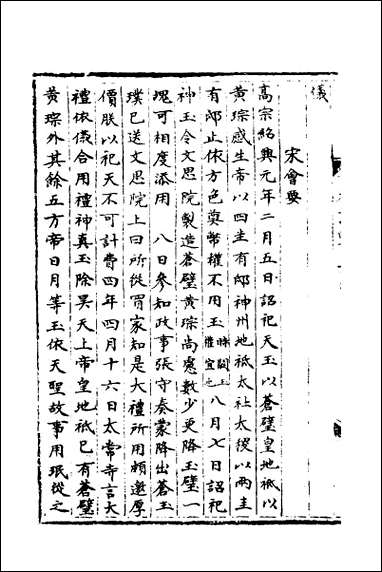 儀
宋會要
高宗紹興元年二月五日詔祀天玉以蒼璧皇地祇以
黃琮感生帝以四圭有邸神州地祇太社太稷以兩圭
有邸止依方色奠幣權不用玉時闕玉權宜也八月七日詔祀
神玉令文思院製造蒼璧黃琮尚慮數少更降玉璧一
塊可相度添用 八日參知政事張守奏蒙降出蒼玉
璞已送文思院上曰所從買家知是大禮所用頗邀厚
價朕以祀天不可計費四年四月十六日太常寺言大
禮依儀合用禮神真玉除昊天上帝皇地祇已有蒼璧
黃琮外其餘五方帝日月等玉依天聖故事用珉從之